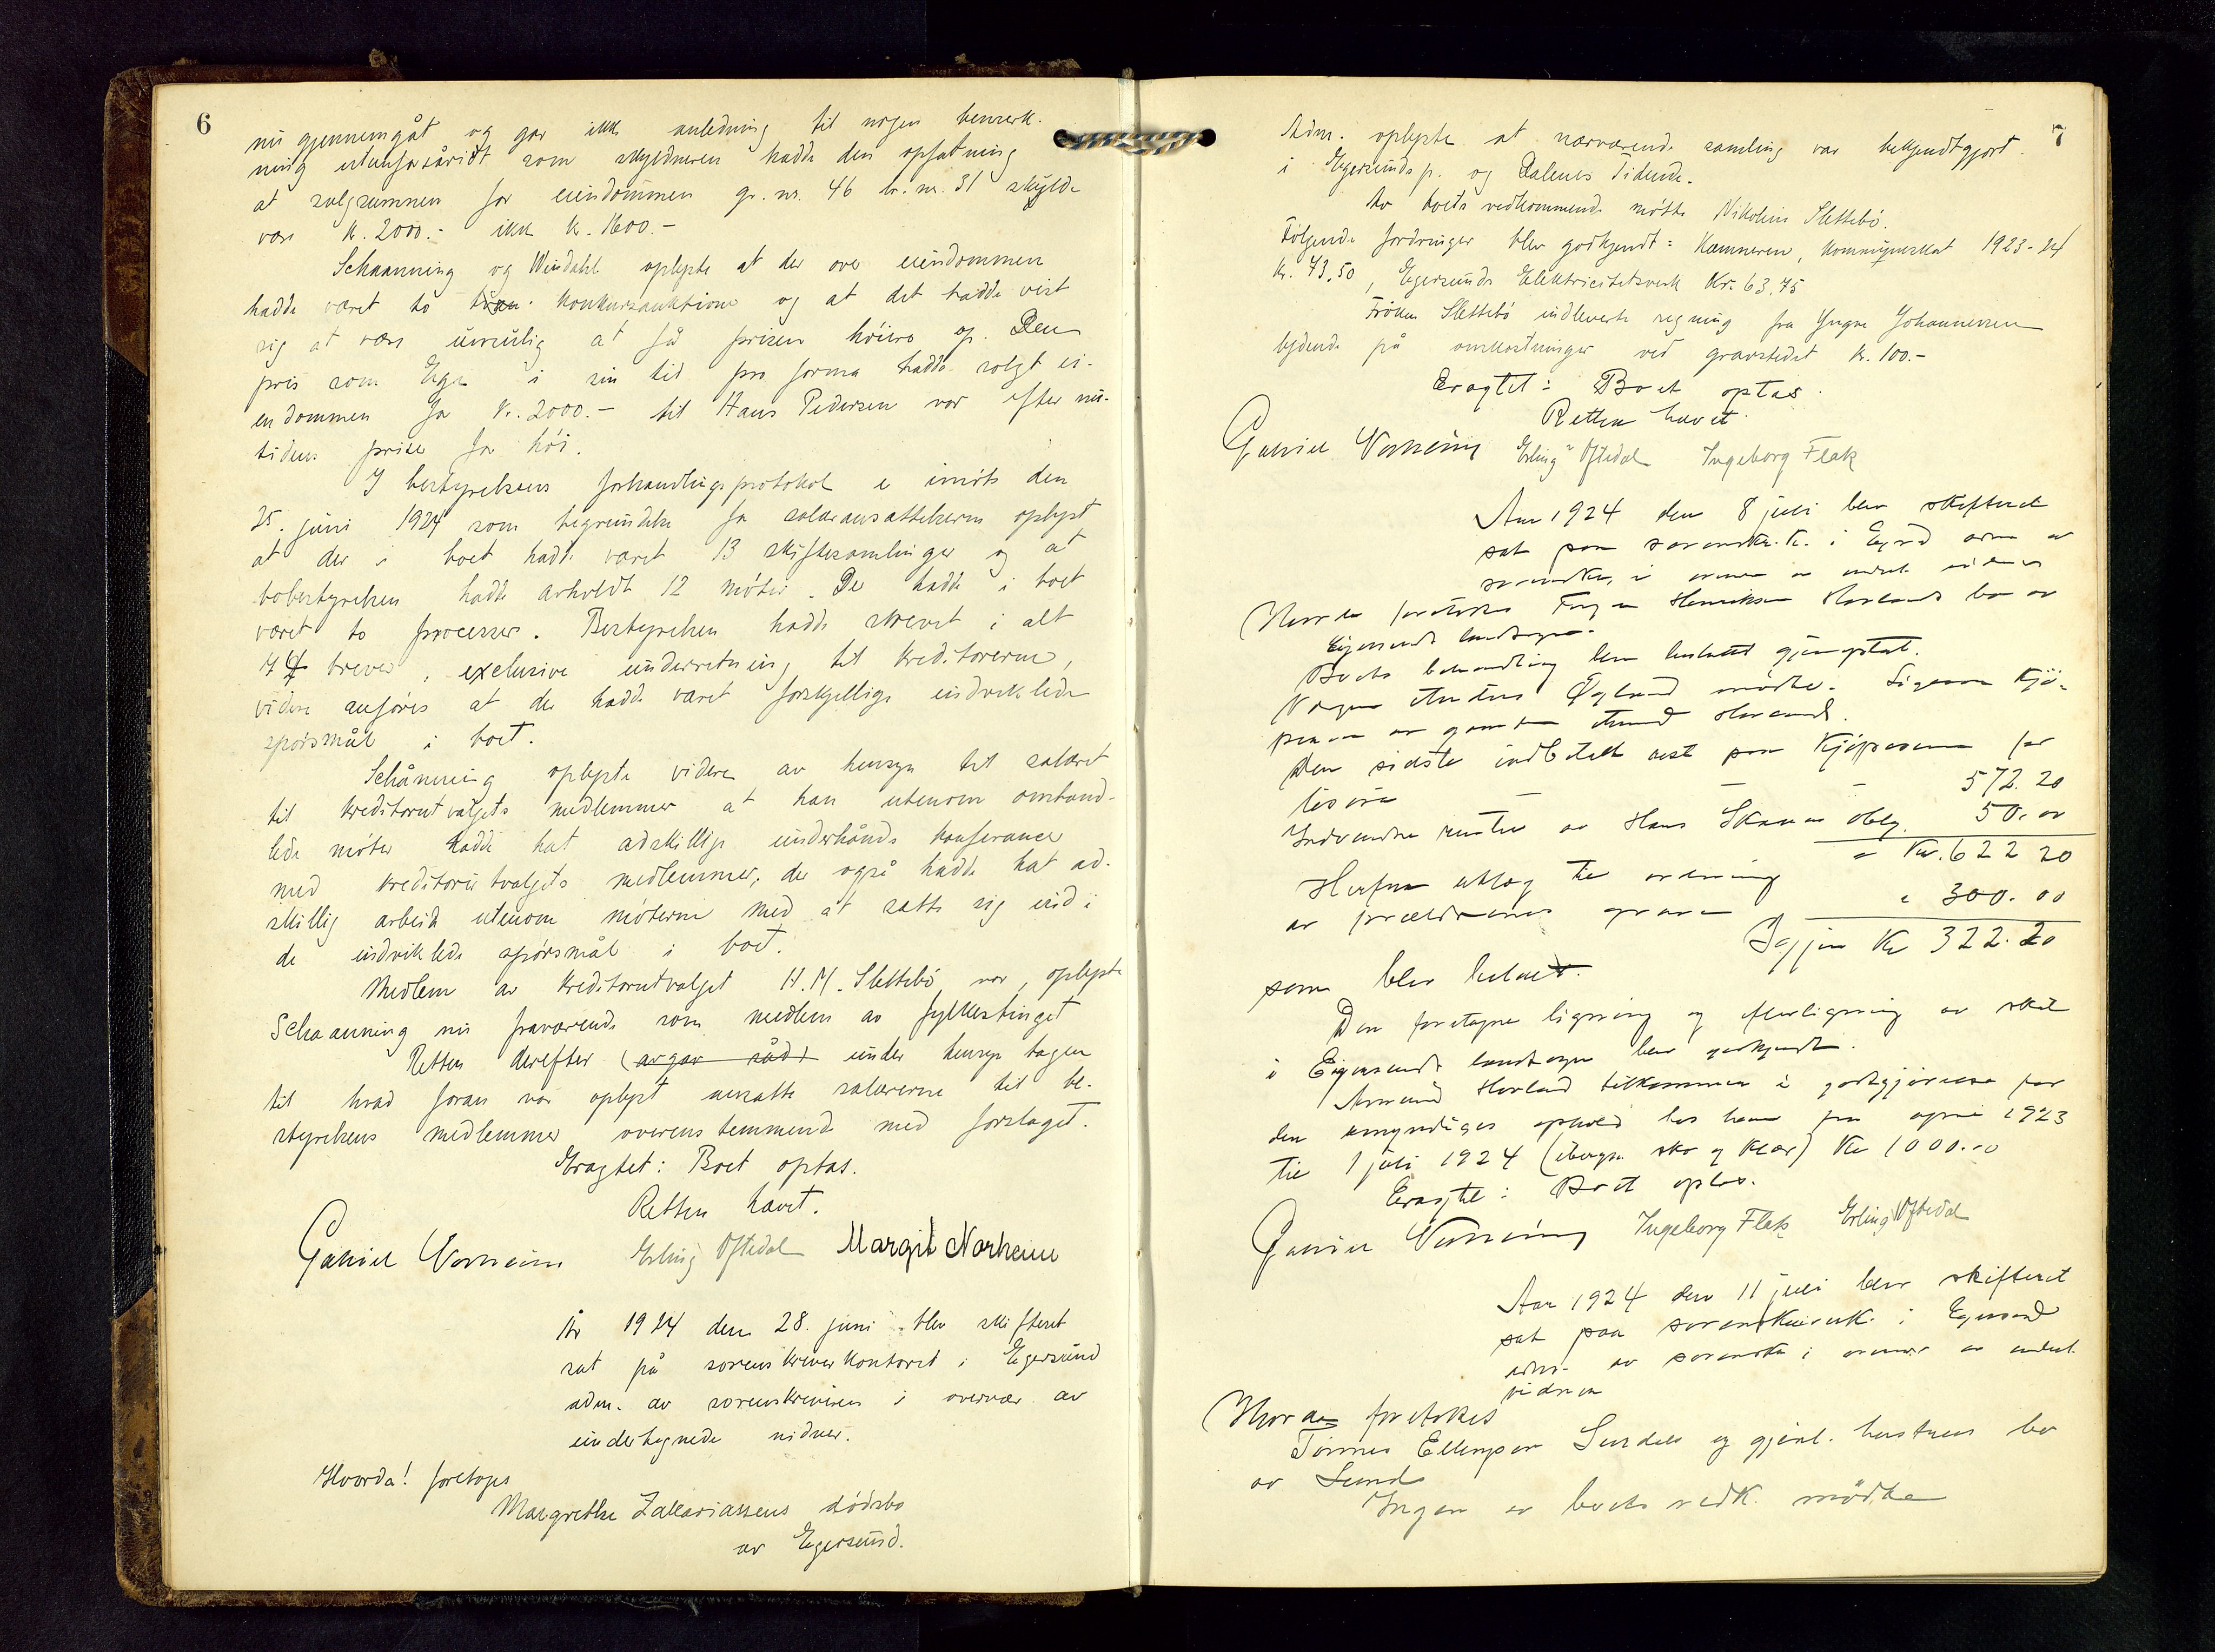 6
nu gjennemgåt og gav ikke anledning til nogen bemerk-
ning utenforsåvidt som skyldneren hadde den opfatning
at salgssummen for eiendommen gr. nr. 46 br. nr. 31 skylde
være kr. 2000.- ikke kr. 1600.-
Schaanning og Windahl oplyste at der over eiendommen
hadde været to konkursauktioner og at det hadde vist
sig at være umulig at få prisen høiere op. Den
pris som Ege i sin tid pro forma hadde solgt ei-
endommen for kr. 2000.- til Hans Pedersen var efter nu-
tidens priser for høi.
I bestyrelsens forhandlingsprotokol er inført den
25. juni 1924 som begrundelse for salæransættelserne oplyst,
at der i boet hadde været 13 skiftesamlinger og at
bobestyrelsen hadde avholdt 12 møter. Der hadde i boet
været to processer. Bestyrelsen hadde skrevet i alt
74 brever, exclusive underretning til kreditorerne,
videre anføres at der hadde været forskjellige indviklede
spørsmål i boet.
Schånning oplyste videre av hensyn til salæret
til kreditorutvalgets medlemmer at han utenom omhand-
lede møter hadde hat adskillige underhånds konferancer
med kreditorutvalgets medlemmer, der også hadde hat ad-
skillig arbeide utenom møterne med at sætte sig ind i
de indviklede spørsmål i boet.
Medlem av kreditorutvalget H. M. Slettebø var, oplyste
Schaanning nu fraværende som medlem av fylkestinget
Retten derefter (avgav råd) under hensyn tagen
til hvad foran var oplyst ansatte salærerne til be-
styrelsens medlemmer overensstemmende med forslaget.
Eragtet: Boet optas.
Retten hævet.
Gabriel Erling Oftedal Margit Norheim
År 1924 den 28. juni blev skifteret
sat på sorenskriverkontoret i Egersund
adm. av sorenskriveren i overvær av
undertegnede vidner.
Hvorda! foretoges
Margrethe Zakariassens dødsbo
av Egersund.
7
Adm. oplyste at nærværende samling var bekjendtgjort
i Egersundsp. og Dalenes Tidende.
Av boets vedkommende møtte Nikoline Slettebø.
Følgende fordringer blev godkjendt: Kæmneren, kommuneskat 1923-24
kr. 43.50, Egersunds Elektricitetsverk Kr. 63,75
Frøken Slettebø indleverte regning fra Yngve Johannessen
lydende på omkostninger ved gravstedet kr. 100.-
Eragtet: Boet optas.
Retten hævet.
Gabriel Erling Oftedal Ingeborg Flak
Aar 1924 den 8 juli blev skifteret
sat paa sorenskr.k. i adm av
sorenskr. i
Hvorda foretokes Henriksen Havlands bo av
Eigersunds landsogn.
Boets behandling blev besluttet gjenoptat.
Øgland mødte. Ligesom Kjø-
Den sidste indbetalt rest paa Kjøpesum for
løsøre - - - 572.20
renter av Hans Skaaras oblg. 50.00
= Kr. 622 20
Herfra utlæg til ordning
av forældrenes grave " 300.00
Igjen Kr 322.20
som blev
Den foretagne ligning og efterligning av skat
i Eigersunds landsogn blev godkjendt.
Havland tilkommer i godtgjørelse for
den umyndiges ophold hos ham fra april 1923
til 1 juli 1924 (iberegn. sko og klær) Kr 1000.00
Eragtet: Boet optas.
Gabriel Ingeborg Flak Erling Oftedal
Aar 1924 den 11 juli blev skifteret
sat paa sorenskriverk. i Egersund
adm. av sorenskr. i
vidner
Hvorda foretokes
Tønnes og gjenl. hustrues bo
av Lund
Ingen av boets vedk. mødte